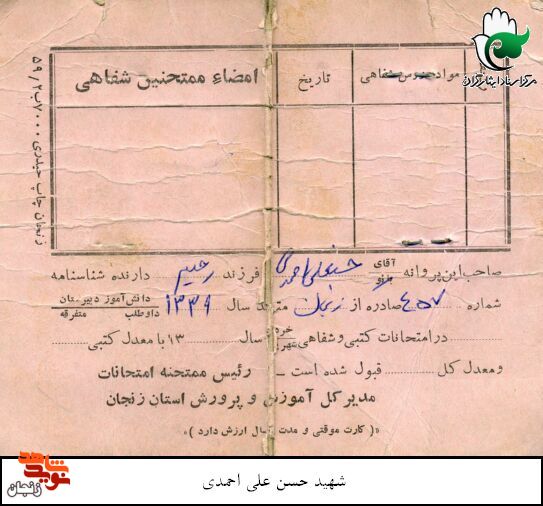 مرکز اسناد ایثارگران
مواد دروس شفاهی
تاریخ
امضاء ممتحنین شفاهی
زنجان چاپ حیدری ۷۰۰۰ ب ۵۹/۲
صاحب این پروانه آقای حسنعلی احمدی فرزند رحیم دارنده شناسنامه
بانو
شماره ۴۵۷ صادره از زنجان متولد سال ۱۳۳۹ دانش‌آموز دبیرستان
داوطلب متفرقه
در امتحانات کتبی و شفاهی خرداد سال ۱۳ با معدل کتبی
شهریور
و معدل کل قبول شده است ـ رئیس ممتحنه امتحانات
مدیر کل آموزش و پرورش استان زنجان
«( کارت موقتی و مدت سال ارزش دارد )»
نوید شاهد
زنجان
شهید حسن علی احمدی